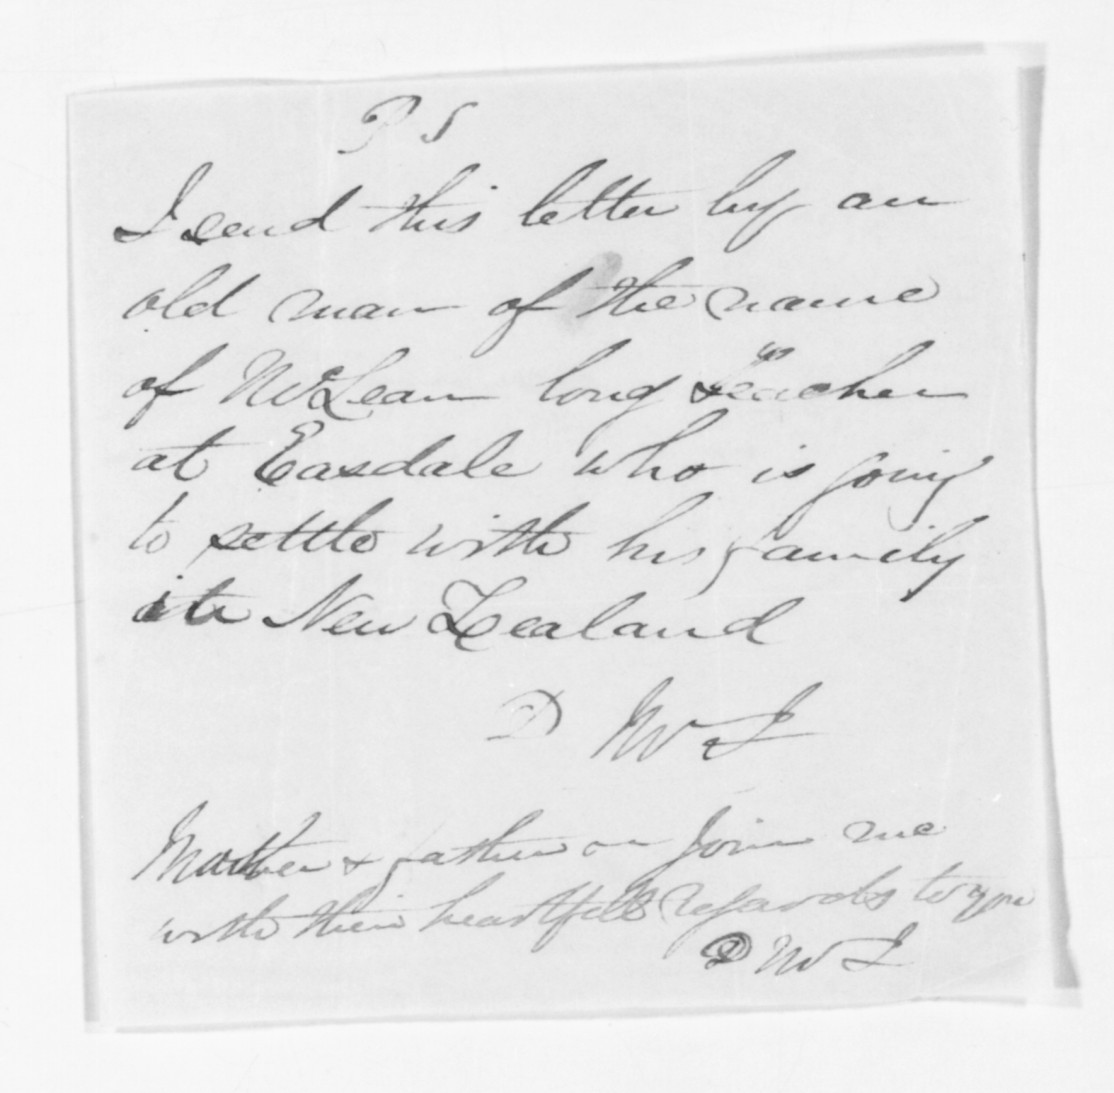 P S
I send this letter by an
old man of the name
of McLean long Teacher
at Easdale who is going
to settle with his family
in New Zealand
D McL
Mother & father in Join me
with their heartfelt regards to you
D McL